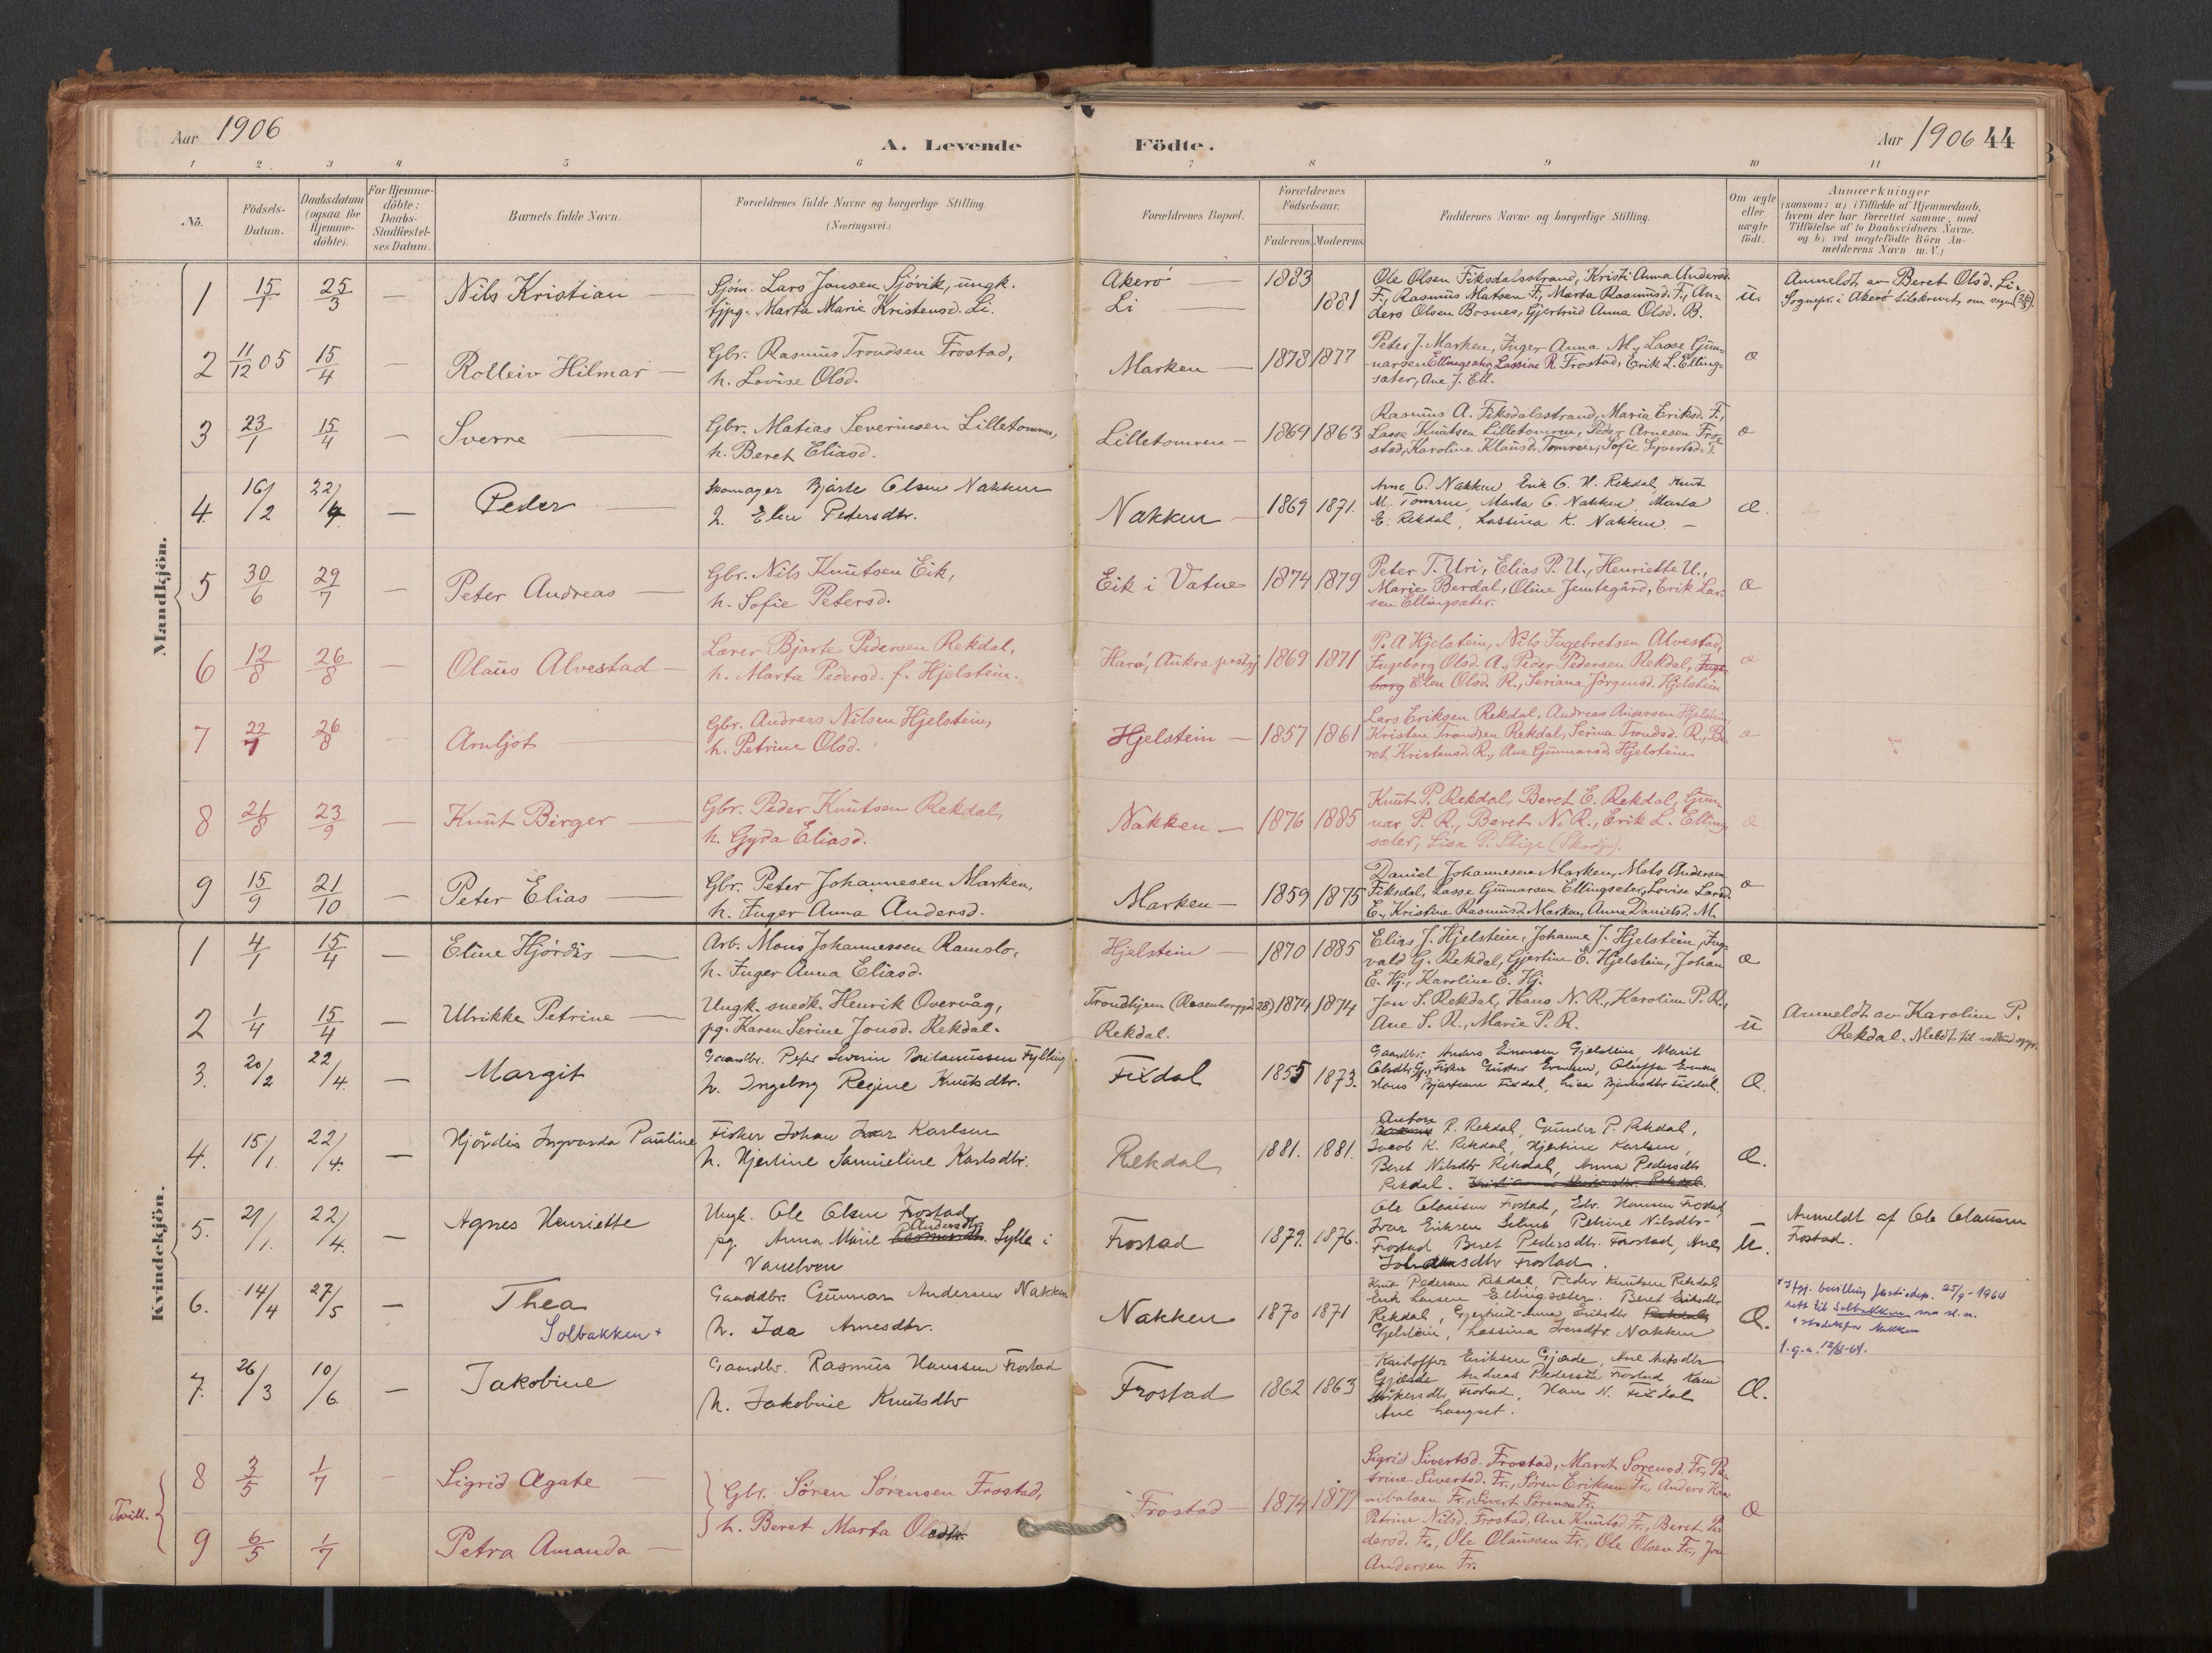 Aar 1906
A. Levende
Födte.
Aar 1906 44
1 2 3 4 5 6 7 8 9 10 11
No.
Födsels-
Datum.
Daabsdatum
(ogsaa for
Hjemme-
döbte).
For Hjemme-
döbte:
Daabs-
Stadfæstel-
ses Datum.
Barnets fulde Navn.
Forældrenes fulde Navne og borgerlige Stilling.
(Næringsvei.)
Forældrenes Bopæl.
Forældrenes
Födselsaar.
Faderens. Moderens.
Faddernes Navne og borgerlige Stilling.
Om ægte
eller
uægte
födt.
Anmærkninger
(saasom: a) i Tilfælde af Hjemmedaab,
hvem der har forrettet samme, med
Tilföielse af to Daabsvidners Navne,
og b) ved uægtefödte Börn An-
melderens Navn m. V.)
Mandkjön.
1 15/1 25/3 — Nils Kristian —
Sjöm. Lars Jonsen Sjövik, ungk.
tjpg. Marta Marie Kristensd. Li.
Akerö — 1883
Li — 1881
Ole Olsen Fiksdalsstrand, Kristi Anna Andersd.
F., Rasmus Matsen F., Marta Rasmusd. F., An-
ders Olsen Bosnes, Gjertrud Anna Olsd. B.
u.
Anmeldt av Beret Olsd. Li.
Sognepr. i Akerö tilskrevet om
2 11/12 05 15/4 — Rolleiv Hilmar —
Gbr. Rasmus Trondsen Frostad,
h. Lovise Olsd.
Marken — 1878 1877
Peter J. Marken, Inger Anna M., Lasse Gun-
narsen Ellingsæter, Lassine R. Frostad, Erik L. Elling-
sæter, Ane J. Ell.
æ
3 23/1 15/4 — Sverre —
Gbr. Matias Severinsen Lilletomren,
h. Beret Eliasd.
Lilletomren — 1869 1863
Rasmus A. Fiksdalsstrand, Maria Eriksd. F.,
Lasse Knutsen Lilletomren, Peder Arnesen Fro-
stad, Karoline Klausd. Tomren, Sofie Syvertsd. T.
æ
4. 16/2 22/4 — Peder —
Skomager Bjarte Olsen Nakken
h. Elen Pedersdtr.
Nakken — 1869 1871.
Arne O. Nakken Erik G. H. Rekdal, Knut
M. Tomren, Marta O. Nakken, Marta
E. Rekdal, Lassina K. Nakken. —
æ.
5 30/6 29/7 — Peter Andreas —
Gbr. Nils Knutsen Eik,
h. Sofie Petersd.
Eik i Vatne 1874 1879
Peter T. Uri, Elias P. U., Henriette U.,
Marie Berdal, Oline Jemtegård, Erik Lar-
sen Ellingsæter.
æ
6 12/8 26/8 — Olaus Alvestad —
Lærer Bjarte Pedersen Rekdal,
h. Marta Pedersd. f. Hjelstein.
Harö, Aukra prstgj. 1869 1871
P. A. Hjelstein, Nils Ingebretsen Alvestad,
Ingeborg Olsd. A., Peder Pedersen Rekdal, Inge-
borg Elen Olsd. R., Seriana Jörgensd. Hjelstein
æ
7 22/7 26/8 Arnljot —
Gbr. Andreas Nilsen Hjelstein,
h. Petrine Olsd.
Hjelstein — 1857 1861
Lars Eriksen Rekdal, Andreas Andersen Hjelstein,
Kristen Trondsen Rekdal, Serina Trondsd. R., Be-
ret Kristensd. R., Ane Gunnarsd. Hjelstein
æ
8 21/8 23/9 — Knut Birger —
Gbr. Peder Knutsen Rekdal,
h. Gyda Eliasd.
Nakken — 1876 1885
Knut P. Rekdal, Beret E. Rekdal, Gun-
nar P. R., Beret N. R., Erik L. Elling-
sæter, Lisa P. Stige (Skodje).
æ
9 15/9 21/10 — Peter Elias —
Gbr. Peter Johannesen Marken,
h. Inger Anna Andersd.
Marken — 1859 1875
Daniel Johannesen Marken, Mats Andersen
Fiksdal, Lasse Gunnarsen Ellingsæter, Lovise Larsd.
E., Kristine Rasmusd. Marken, Anna Danielsd. M.
æ
Kvindekjön.
1 4/1 15/4 — Eline Hjördis —
Arb. Mons Johannessen Ramslo,
h. Inger Anna Eliasd.
Hjelstein — 1870 1885
Elias J. Hjelstein, Johanne J. Hjelstein, Ing-
vald G. Rekdal, Gjertine E. Hjelstein, Johan
E. Hj., Karoline E. Hj.
æ
2 1/4 15/4 — Ulrikke Petrine —
Ungk. snedk. Henrik Overvåg,
pg. Karen Serine Jonsd. Rekdal.
Trondhjem (Rosenborggd. 28) 1874 1874
Rekdal.
Jon S. Rekdal, Hans N. R., Karoline P. R.,
Ane S. R., Marie P. R.
u
Anmeldt av Karoline P.
Rekdal. Meldt til
3. 20/2 22/4. — Margit
Gaardbr. Peter Severin Fylling
h. Ingeborg Regine Knutsdtr.
Fixdal 1855 1873.
Gaardbr. Anders Einarsen Gjelstein Marit
Olsdtr. Gj., Fisker Gustav Olufpa
Hans Bjartesen Fixdal, Lisa Bjartesdtr Fixdal.
Æ.
4. 15/1. 22/4. — Hjördis Ingvarda Pauline
Fisker Johan Ivar Karlsen
h. Hjertine Samueline Karlsdtr.
Rekdal 1881. 1881.
Anton
P. Rekdal, Gunder P. Rekdal,
Jacob K. Rekdal, Hjertine Karlsen,
Beret Nilsdtr Rekdal, Anna Pedersdtr
Rekdal.
Æ.
5. 21/1. 22/4. — Agnes Henriette
Ungk. Ole Olsen Frostad
Andersdtr.
pg. Anna Marie Rasmusdtr. Sylte i
Vanelven
Frostad 1879. 1876.
Ole Olaussen Frostad, Edv. Hansen Frostad,
Ivar Eriksen Petrine Nilsdtr-
Frostad Beret Pedersdtr. Frostad, Ane
Frostad.
— U.
Anmeldt af Ole Olaussen
Frostad.
6. 14/4 27/5 — Thea
Solbakken +
Gaardbr. Gunnar Andersen Nakken
h. Ida Arnesdtr.
Nakken 1870 1871
Knut Pedersen Rekdal, Peder Knutsen Rekdal
Erik Larsen Ellingsæter. Beret Eriksdtr
Rekdal, Gjertrud-Anna Eriksdtr Rekdal
Gjelstein, Lassina Iversdtr. Nakken
Æ.
+ Ifgj. bevilling Justisdep. 25/9-1964
rett til Solbakken som sl. n.
istedetfor Nakken
7. 26/3 10/6 — Jakobine
Gaardbr. Rasmus Hanssen Frostad
h. Jakobine Knutsdtr
Frostad 1862 1863
Kristoffer Eriksen Gjærde, Ane
Gjærde Andreas Pedersen Frostad, Karen
Frostad, Hans N. Fixdal
Ane Langset.
Æ.
Tvill.
8 3/5 1/7 — Sigrid Agate —
9 6/5 1/7 Petra Amanda —
Gbr. Sören Sörensen Frostad,
h. Beret Marta Olsdtr.
Frostad — 1874 1877
Sigrid Sivertsd. Frostad, Marit Sörensd. Fr., Pe-
trine Sivertsd. Fr., Sören Eriksen Fr., Anders Han-
nibalsen Fr., Sivert Sörensen Fr.
Petrine Nilsd. Frostad, Ane Knutsd. Fr., Beret Pe-
dersd. Fr., Ole Olaussen Fr., Ole Olsen Fr., Jon
Andersen Fr.
æ